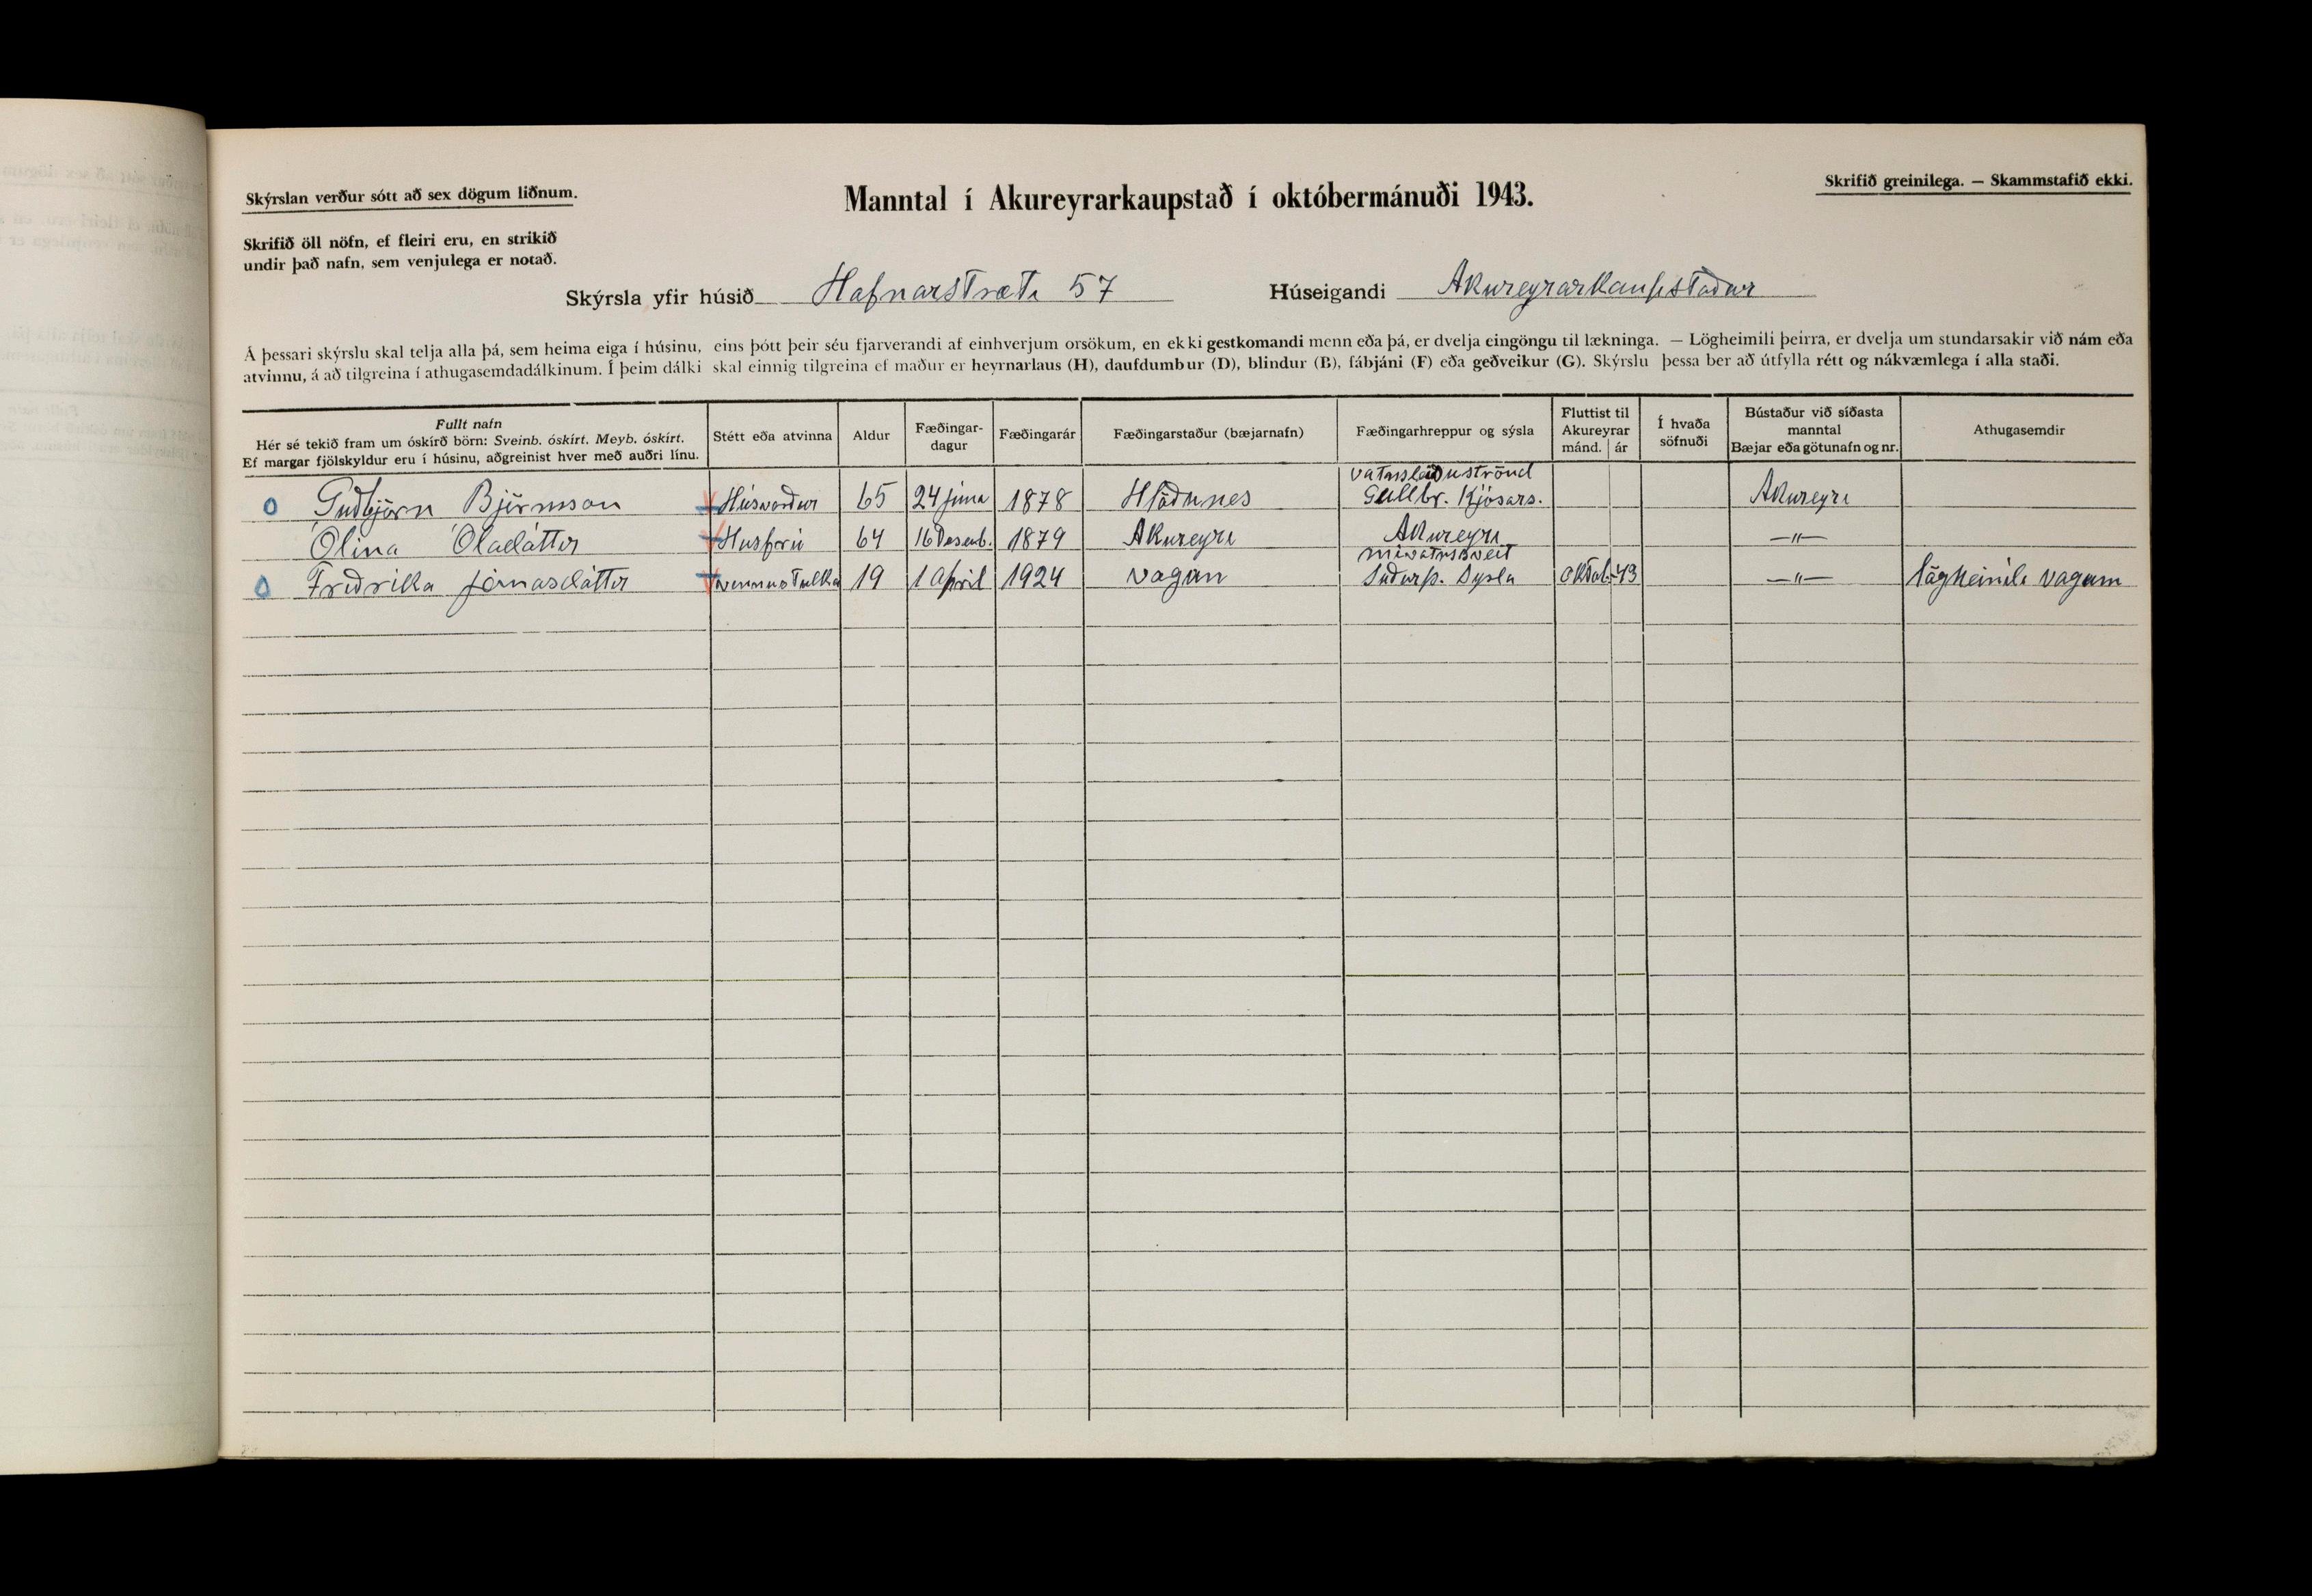 Skýrslan verður sótt að sex dögum liðnum.
Manntal í Akureyrarkaupstað í októbermánuði 1943.
Skrifið greinilega. — Skammstafið ekki.
Skrifið öll nöfn, ef fleiri eru, en strikið
undir það nafn, sem venjulega er notað.
Skýrsla yfir húsið Hafnarstræti 57 Húseigandi Akureyrarkaupstaður
Á þessari skýrslu skal telja alla þá, sem heima eiga í húsinu, eins þótt þeir séu fjarverandi af einhverjum orsökum, en ekki gestkomandi menn eða þá, er dvelja eingöngu til lækninga. — Lögheimili þeirra, er dvelja um stundarsakir við nám eða
atvinnu, á að tilgreina í athugasemdadálkinum. Í þeim dálki skal einnig tilgreina ef maður er heyrnarlaus (H), daufdumbur (D), blindur (B), fábjáni (F) eða geðveikur (G). Skýrslu þessa ber að útfylla rétt og nákvæmlega í alla staði.
Fullt nafn
Hér sé tekið fram um óskírð börn: Sveinb. óskírt. Meyb. óskírt.
Ef margar fjölskyldur eru í húsinu, aðgreinist hver með auðri línu.
Stétt eða atvinna
Aldur
Fæðingar-
dagur
Fæðingarár
Fæðingarstaður (bæjarnafn)
Fæðingarhreppur og sýsla
Fluttist til
Akureyrar
mánd. ár
Í hvaða
söfnuði
Bústaður við síðasta
manntal
Bæjar eða götunafn og nr.
Athugasemdir
Vatnsleiðuströnd
Guðbjörn Björnsson Húsvörður 65 24 júna 1878 Hlöðunes Gullbr. Kjósars. Akureyri
Ólina Óladóttir Husfrú 64 16 Desemb. 1879 Akureyri Akureyri —"—
mivatnsveit
Fridrikka Jónasdóttir vinnustulka 19 1 April 1924 vagun Suðurþ. Sysla Oktob. 43 —"— lögheimili vagum